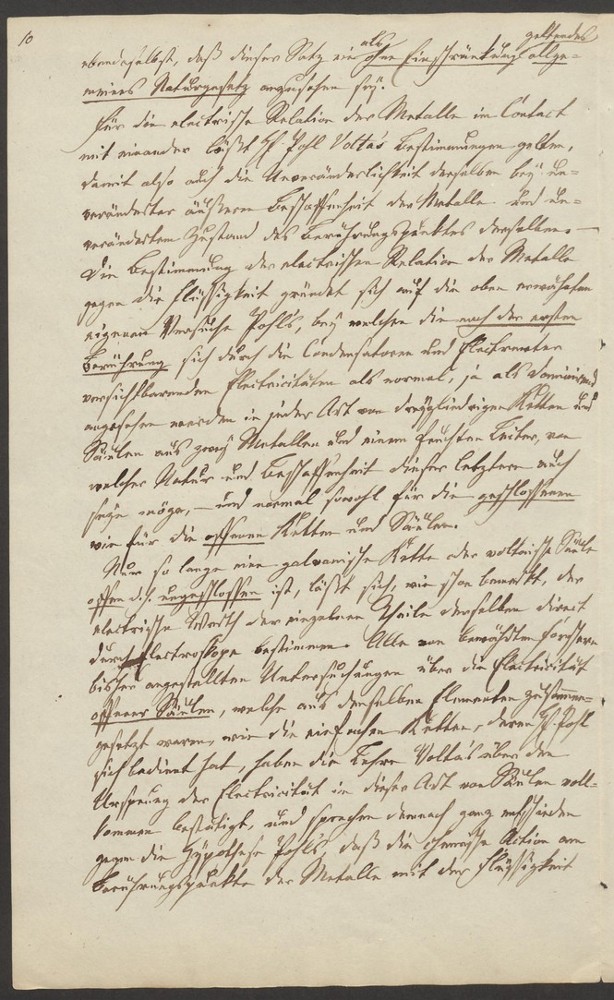 10
geltendes
ebendaselbst, daß dieser Satz nie als ohne Einschränkung allge-
meines Naturgesetz anzusehen sey.
Für die electrische Relation der Metalle im Contact
mit einander läßt H. Pohl Volta's Bestimmungen gelten,
damit also auch die Unveränderlichkeit derselben bey un-
veränderter äußerer Beschaffenheit der Metalle und un-
verändertem Zustand des Berührungspunktes derselben. —
Die Bestimmung der electrischen Relation der Metalle
gegen die Flüssigkeit gründet sich auf die oben erwähnten
eigenen Versuche Pohl's, bey welchen die nach der ersten
Berührung sich durch die Condensatoren und Electrometer
versichtbarenden Electricitäten als normal, ja als dominirend
angesehen werden in jeder Art von dreygliedrigen Ketten und
Säulen aus zwey Metallen und einem feuchten Leiter, von
welcher Natur und Beschaffenheit dieser letztere auch
seyn möge, — und normal sowohl für die geschlossenen
wie für die offenen Ketten und Säulen.
Nur so lange eine galvanische Kette oder voltaische Säule
offen d. h. ungeschlossen ist, läßt sich, wie schon bemerkt, der
electrische Werth der einzelnen Theile derselben direct
durch Electroskope bestimmen. Alle von bewährten Forschern
bisher angestellten Untersuchungen über die Electricität
offener Säulen, welche aus denselben Elementen zusammen-
gesetzt waren, wie die einfachen Ketten, deren H. Pohl
sich bedient hat, haben die Lehre Volta's über den
Ursprung der Electricität in dieser Art von Säulen voll-
kommen bestätigt, und sprechen demnach ganz entschieden
gegen die Hypothese Pohl's, daß die chemische Action am
Berührungspunkte der Metalle mit der Flüssigkeit